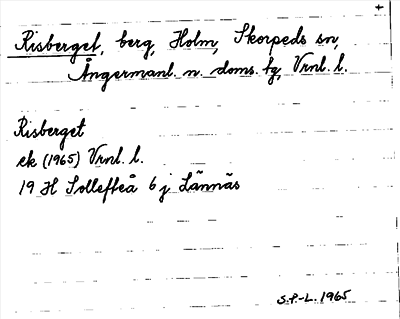 +
Risberget, berg, Holm, Skorpeds sn,
Ångermanl. n. doms. fg, Vrnl. l.
Risberget
ek (1965) Vrnl. l.
19 H Sollefteå 6 j Lännäs
S.P-L. 1965